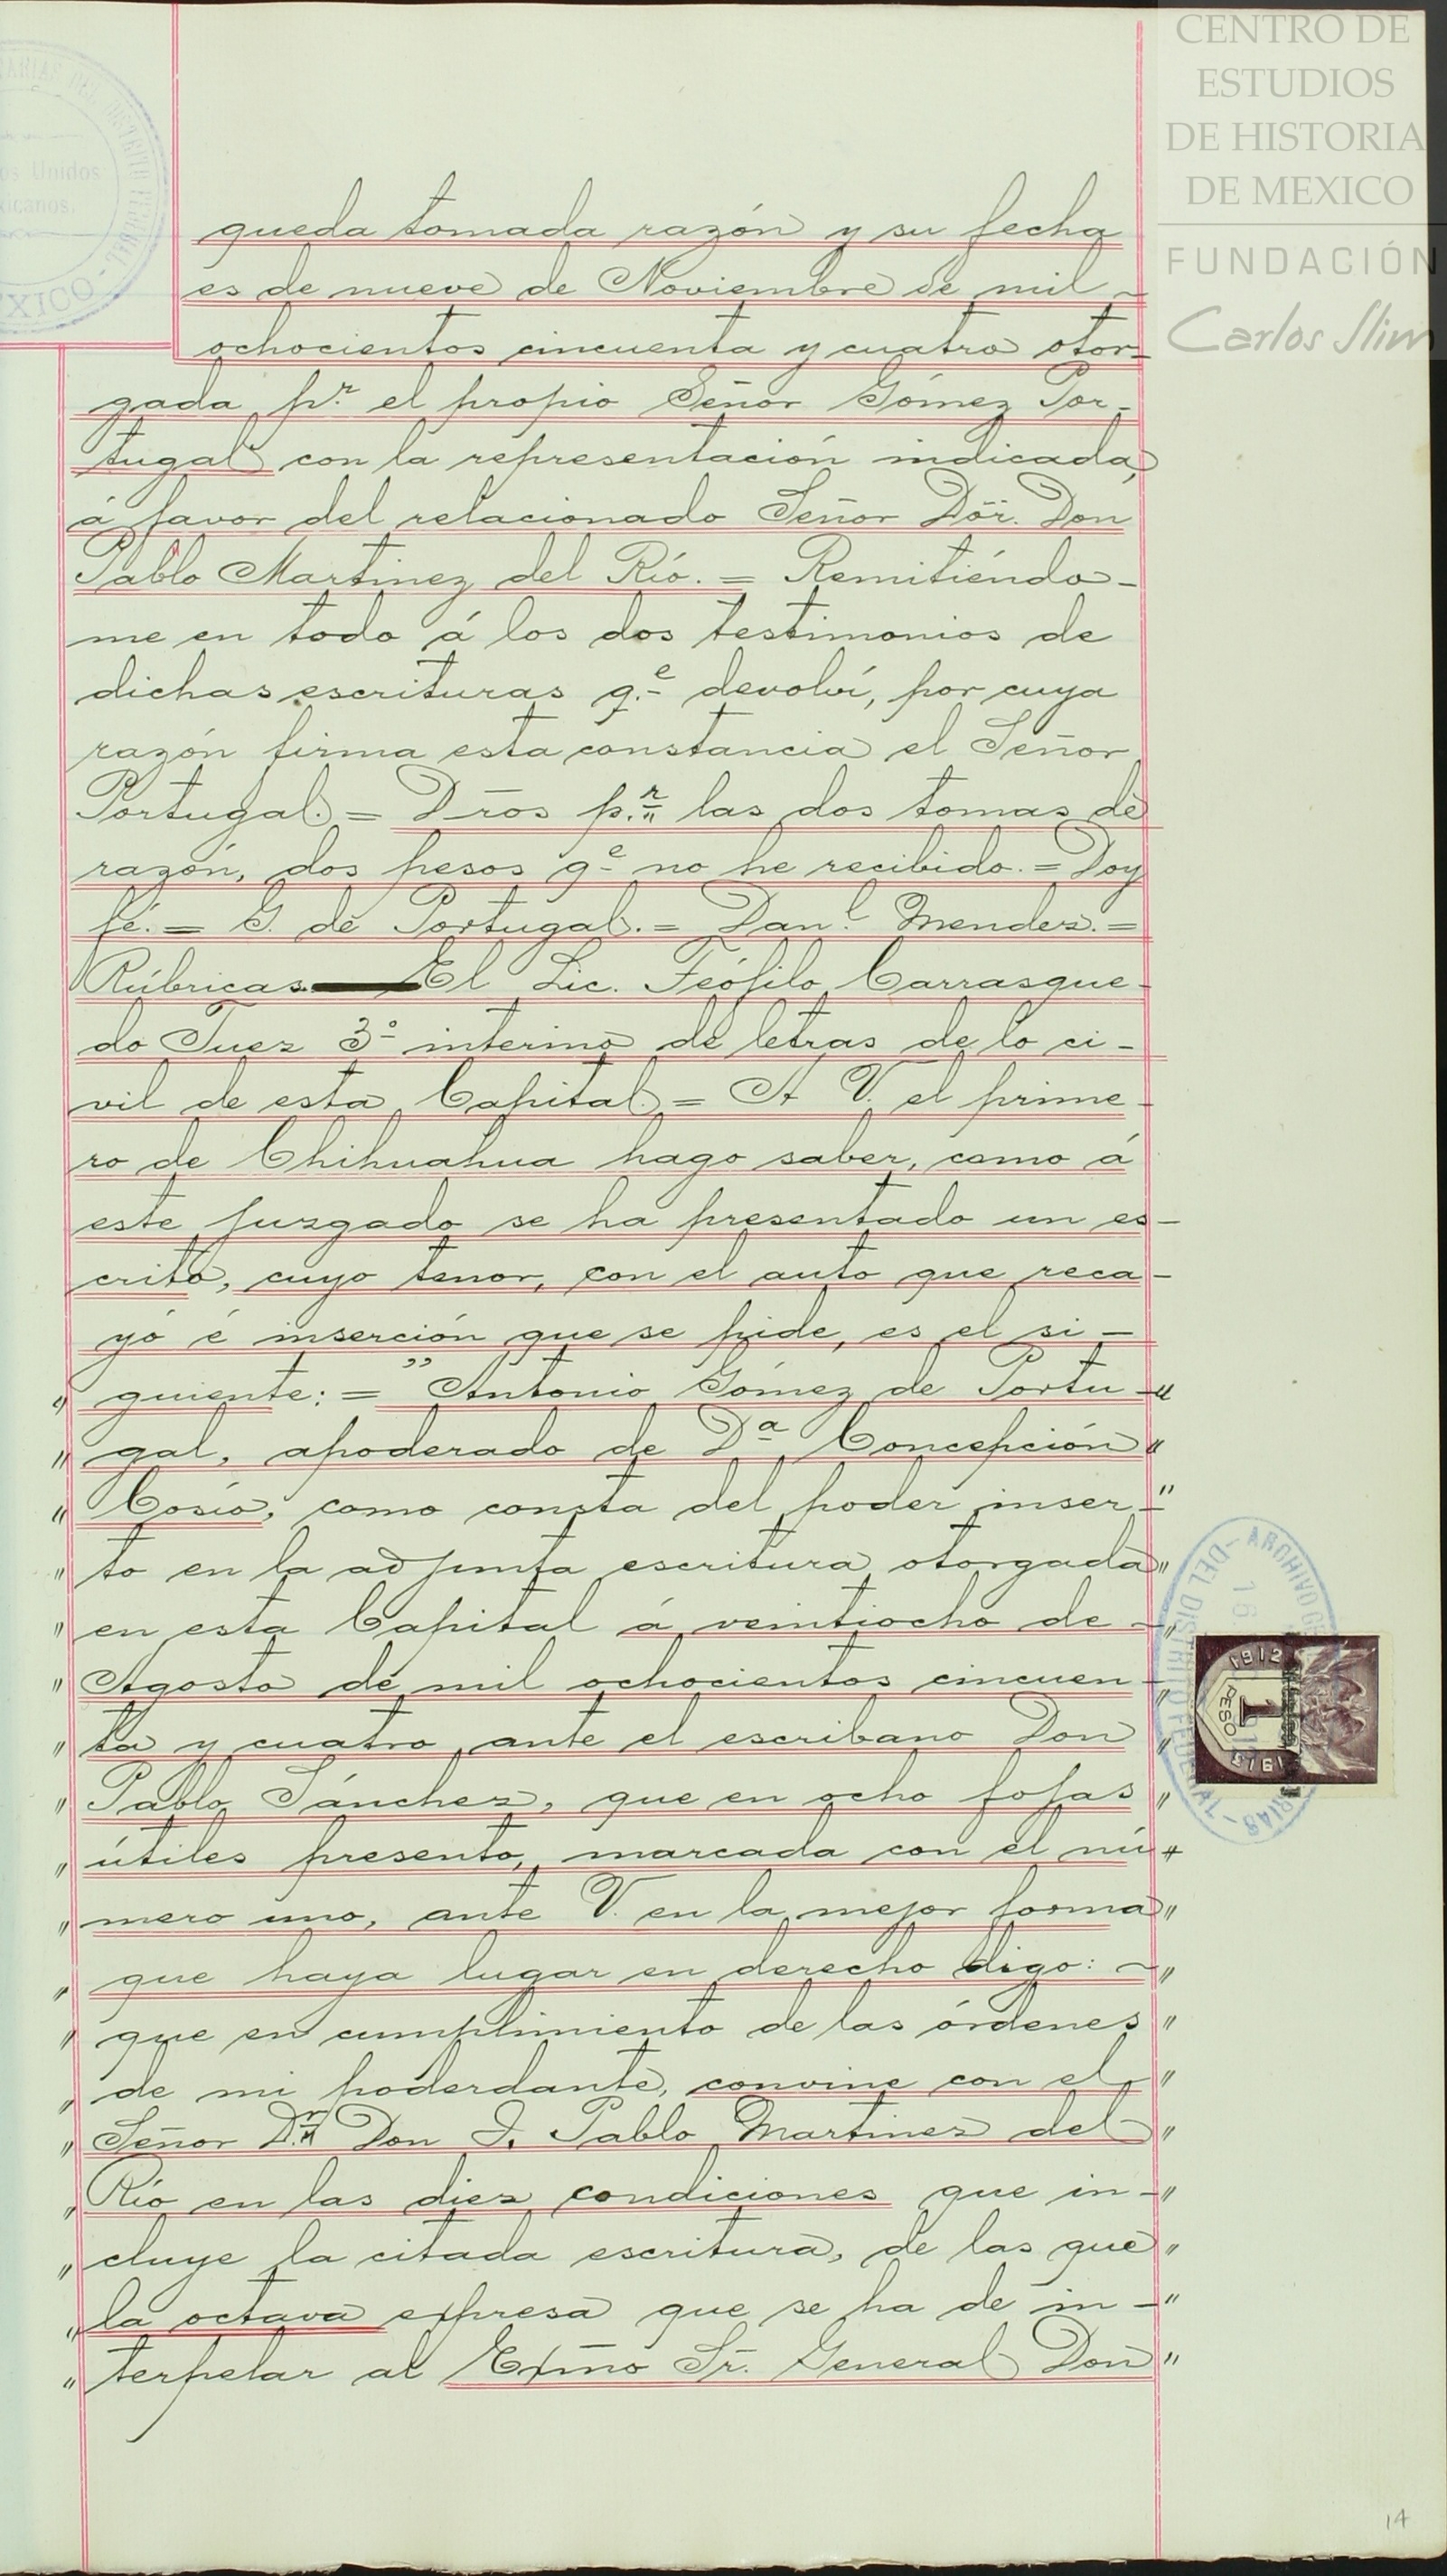 CENTRO DE
ESTUDIOS
DE HISTORIA
DE MEXICO
FUNDACIÓN
Carlos Slim
os Unidos
xicanos.
XICO
queda tomada razón y su fecha
es de nueve de Noviembre de mil ~
ochocientos cincuenta y cuatro otor-
gada pr. el propio Señor Gómez Por-
tugal con la representación indicada,
á favor del relacionado Señor Dör. Don
Pablo Martinez del Río. = Remitiéndo-
me en todo á los dos testimonios de
dichas escrituras q.e devolví, por cuya
razón firma esta constancia el Señor
Portugal. = Dros p.r las dos tomas de
razón, dos pesos q.e no he recibido. = Doy
fé. = G. de Portugal. = Dan.l Mendez. =
Rúbricas. — El Lic. Teófilo Carrasque-
do Juez 3.o interino de letras de lo ci-
vil de esta Capital. = A V. el prime-
ro de Chihuahua hago saber, como á
este juzgado se ha presentado un es-
crito, cuyo tenor, con el auto que reca-
yó é inserción que se pide, es el si-
" guiente: = " Antonio Gómez de Portu-"
" gal, apoderado de Da Concepción "
" Cosío, como consta del poder inser-"
" to en la adjunta escritura otorgada "
" en esta Capital á veintiocho de -"
" Agosto de mil ochocientos cincuen-"
" ta y cuatro ante el escribano Don "
" Pablo Sánchez, que en ocho fojas "
" útiles presento, marcada con el nú-"
" mero uno, ante V. en la mejor forma "
" que haya lugar en derecho digo: ~ "
" que en cumplimiento de las órdenes "
" de mi poderdante, convine con el "
" Señor D.r Don J. Pablo Martinez del "
" Río en las diez condiciones que in-"
" cluye la citada escritura, de las que "
" la octava expresa que se ha de in-"
" terpelar al Exmo Sr. General Don "
ARCHIVO GE
DEL DISTRITO FEDERAL
RIAS
16
1912
1
PESO
1913
14